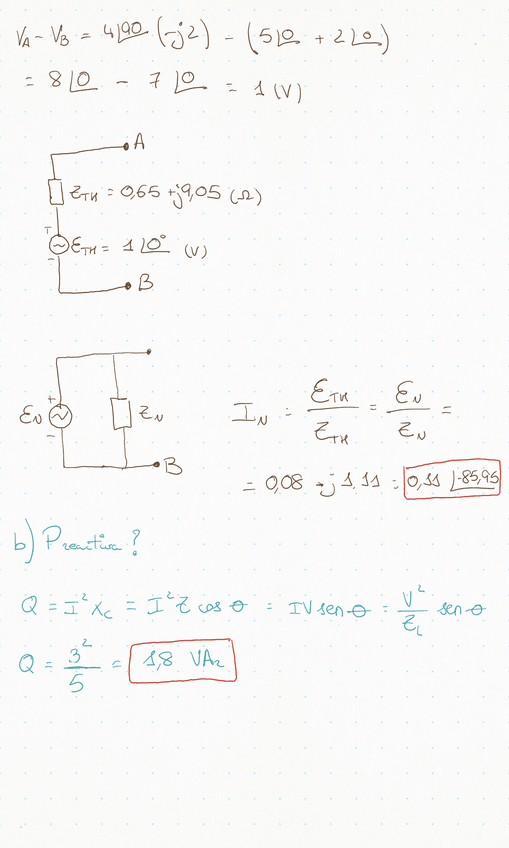 V_A - V_B = 4∠90 (-j2) - (5∠0 + 2∠0)
= 8∠0 - 7∠0 = 1 (V)
A
Z_TH = 0,65 + j9,05 (Ω)
+
E_TH = 1∠0° (V)
-
B
+
E_N
-
Z_N
B
I_N = E_TH / Z_TH = E_N / Z_N =
= 0,08 - j 1,11 = 0,11 ∠-85,95
b) Preactiva?
Q = I² X_C = I² Z cos θ = IV sen θ = V² / Z_L sen θ
Q = 3² / 5 = 1,8 VAr